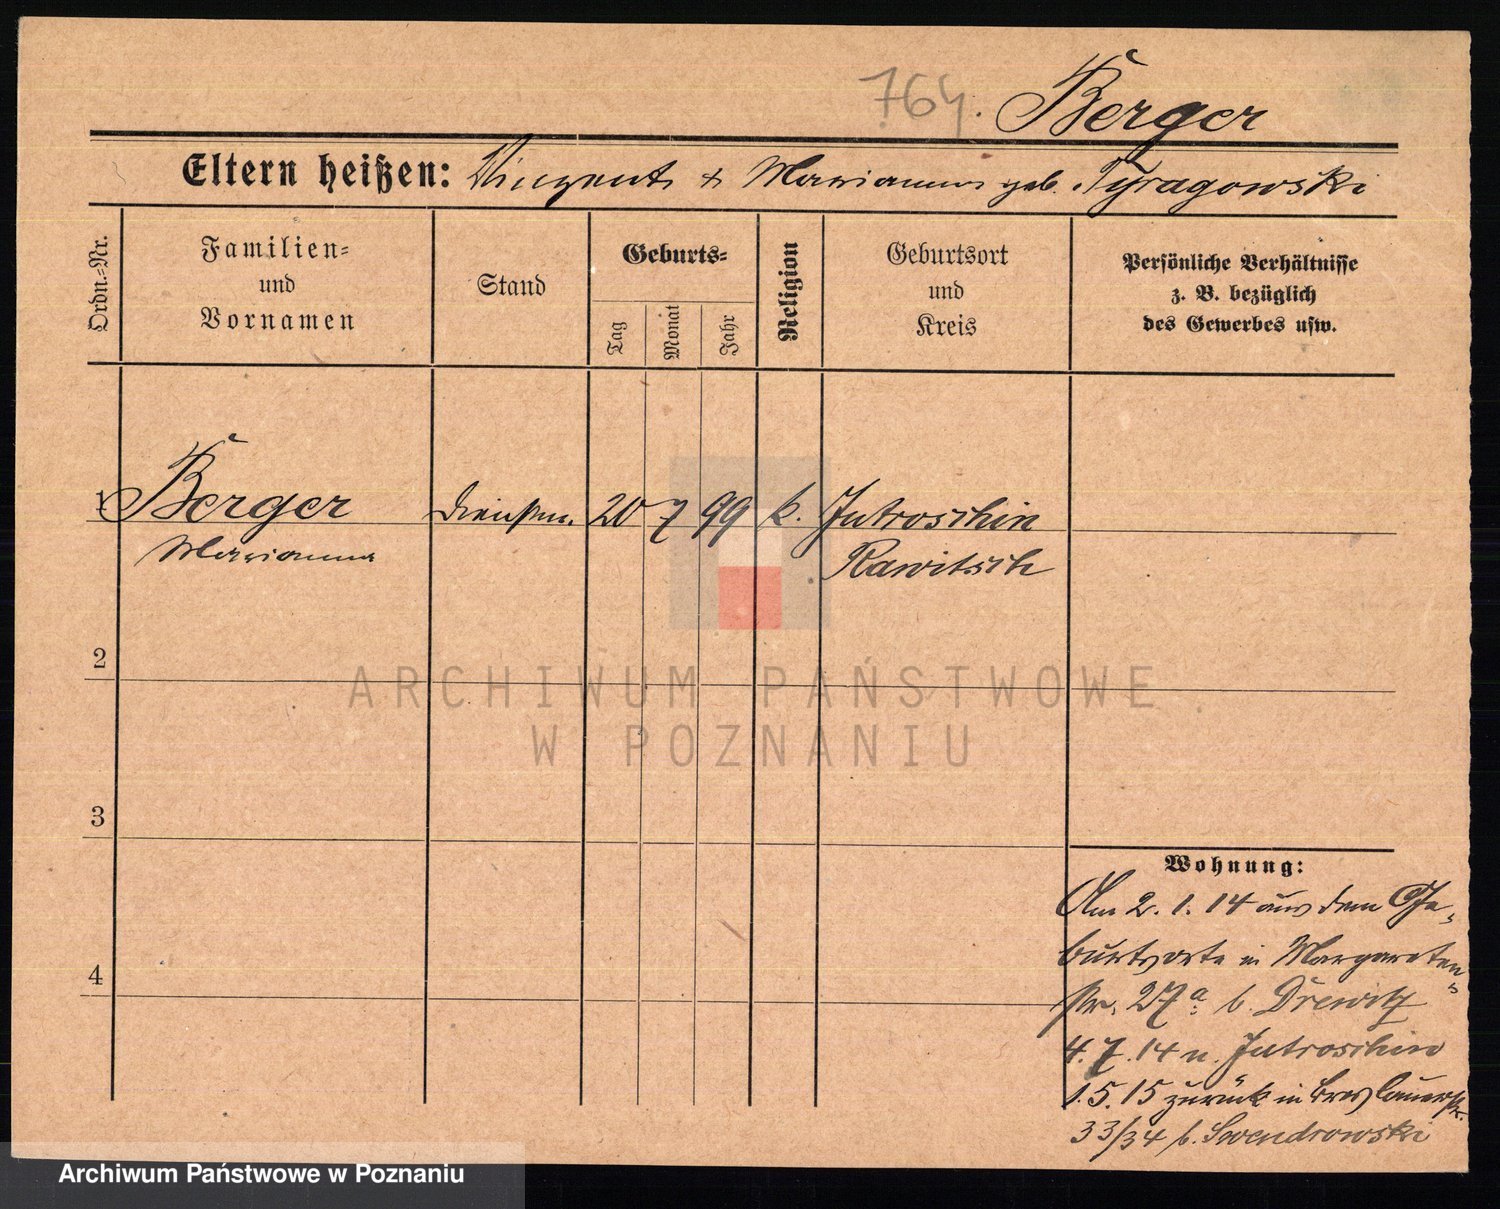 764. Berger
Eltern heißen: Vinzent & Marianna geb. Tyragowski
Ordn.=Nr.
Familien=
und
Vornamen
Stand
Geburts=
Tag
Monat
Jahr
Religion
Geburtsort
und
Kreis
Persönliche Verhältnisse
z. B. bezüglich
des Gewerbes usw.
1 Berger Dienstm. 20 7 99 k. Jutroschin
Marianna Rawitsch
2
3
4
Wohnung:
Am 2. 1. 14 aus dem Ge-
burtsorte in Margareten-
str. 27a b. Drewitz
4. 7. 14 n. Jutroschin
1. 5. 15 zurück in Breslauerstr.
33/34 b. Swendrowski
ARCHIWUM PAŃSTWOWE
W POZNANIU
Archiwum Państwowe w Poznaniu